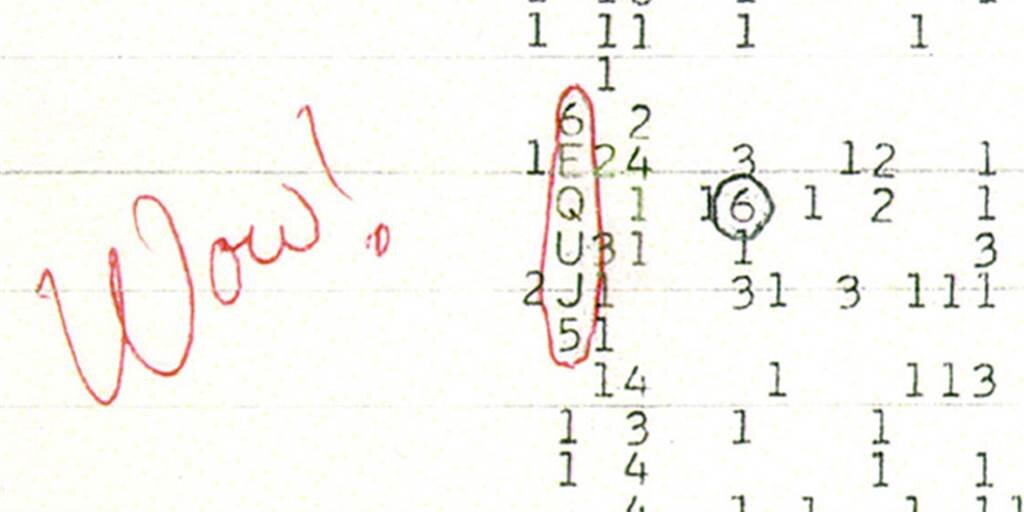 1 11 1 1
1
6 2
1 E 2 4 3 1 2 1
Wow! Q 1 1 6 1 2 1
U 3 1 1 3
2 J 1 3 1 3 1 1 1
5 1
1 4 1 1 1 3
1 3 1 1
1 4 1 1
4 1 1 1 1 1